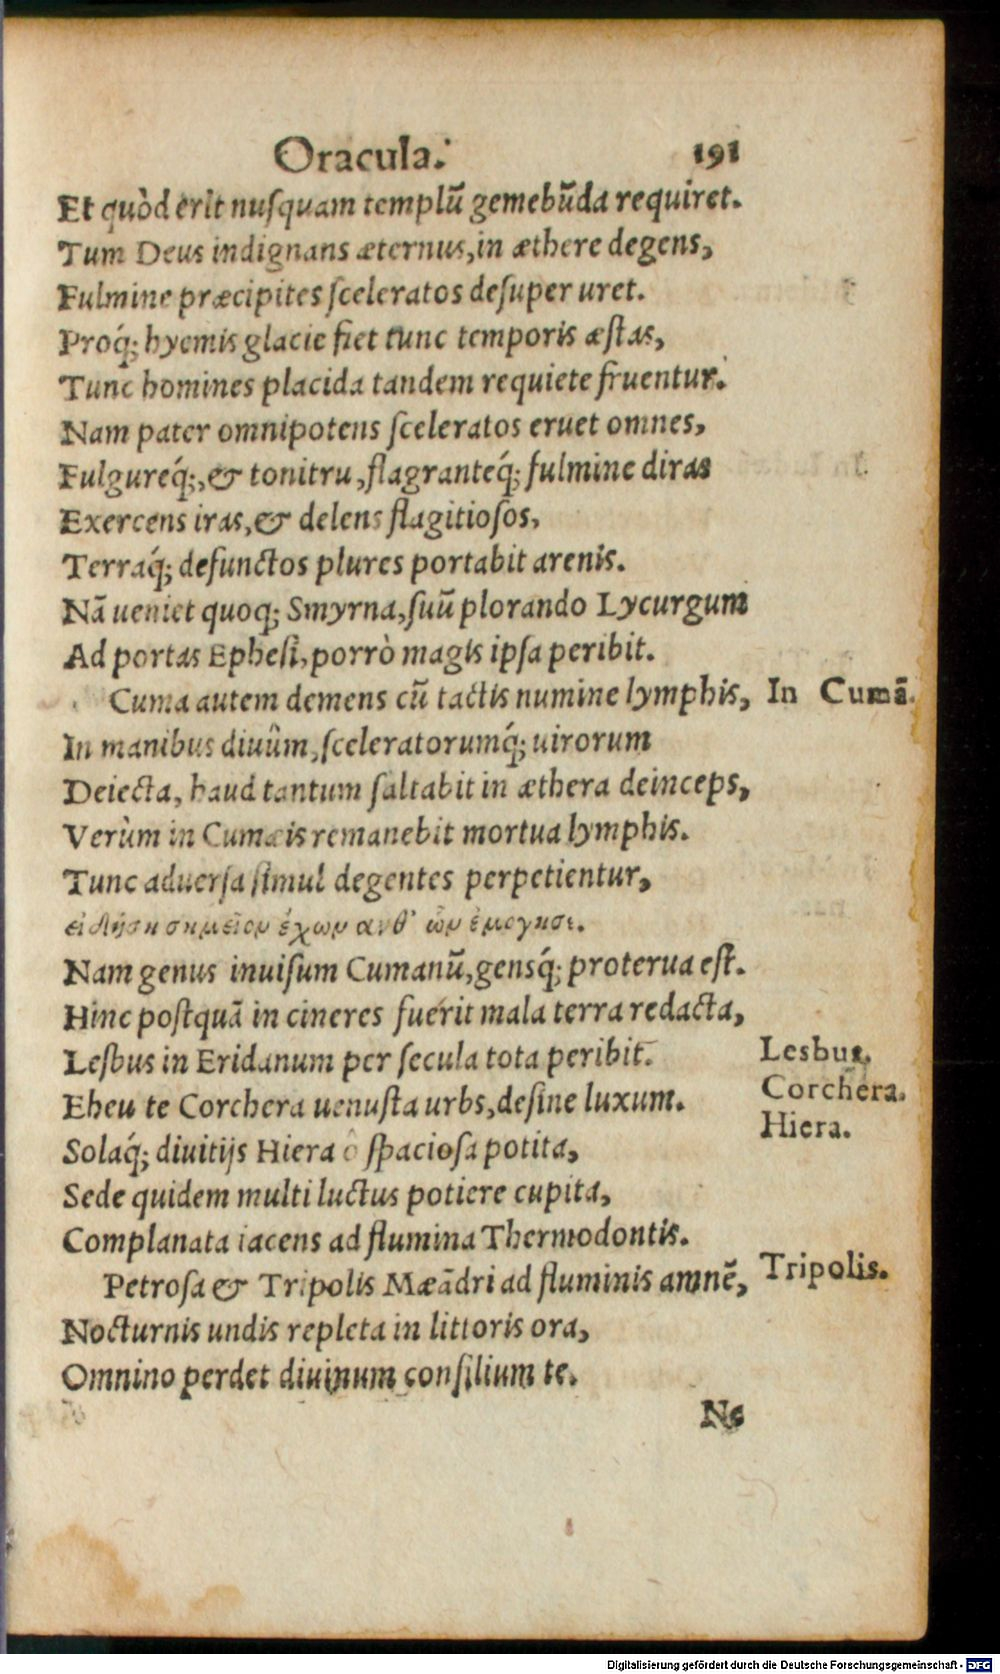 Oracula. 191
Et quòd erit nusquam templũ gemebũda requiret.
Tum Deus indignans æternus, in æthere degens,
Fulmine præcipites sceleratos desuper uret.
Proq́; hyemis glacie fiet tunc temporis æstas,
Tunc homines placida tandem requiete fruentur.
Nam pater omnipotens sceleratos eruet omnes,
Fulgureq́;, & tonitru, flagranteq́; fulmine diras
Exercens iras, & delens flagitiosos,
Terraq́; defunctos plures portabit arenis.
Nã ueniet quoq; Smyrna, suũ plorando Lycurgum
Ad portas Ephesi, porrò magis ipsa peribit.
Cuma autem demens cũ tactis numine lymphis, In Cumã.
In manibus diuûm, sceleratorumq́; uirorum
Deiecta, haud tantum saltabit in æthera deinceps,
Verùm in Cumæis remanebit mortua lymphis.
Tunc aduersa simul degentes perpetientur,
σημεῖον ἔχων ἀνθ' ὧν ἐμόγησε.
Nam genus inuisum Cumanũ, gensq́; proterua est.
Hinc postquã in cineres fuerit mala terra redacta,
Lesbus in Eridanum per secula tota peribit. Lesbus.
Eheu te Corchera uenusta urbs, desine luxum. Corchera.
Solaq́; diuitijs Hiera ô spaciosa potita, Hiera.
Sede quidem multi luctus potiere cupita,
Complanata iacens ad flumina Thermodontis.
Petrosa & Tripolis Mæãdri ad fluminis amnẽ, Tripolis.
Nocturnis undis repleta in littoris ora,
Omnino perdet diuinum consilium te.
Ne
Digitalisierung gefördert durch die Deutsche Forschungsgemeinschaft - DFG